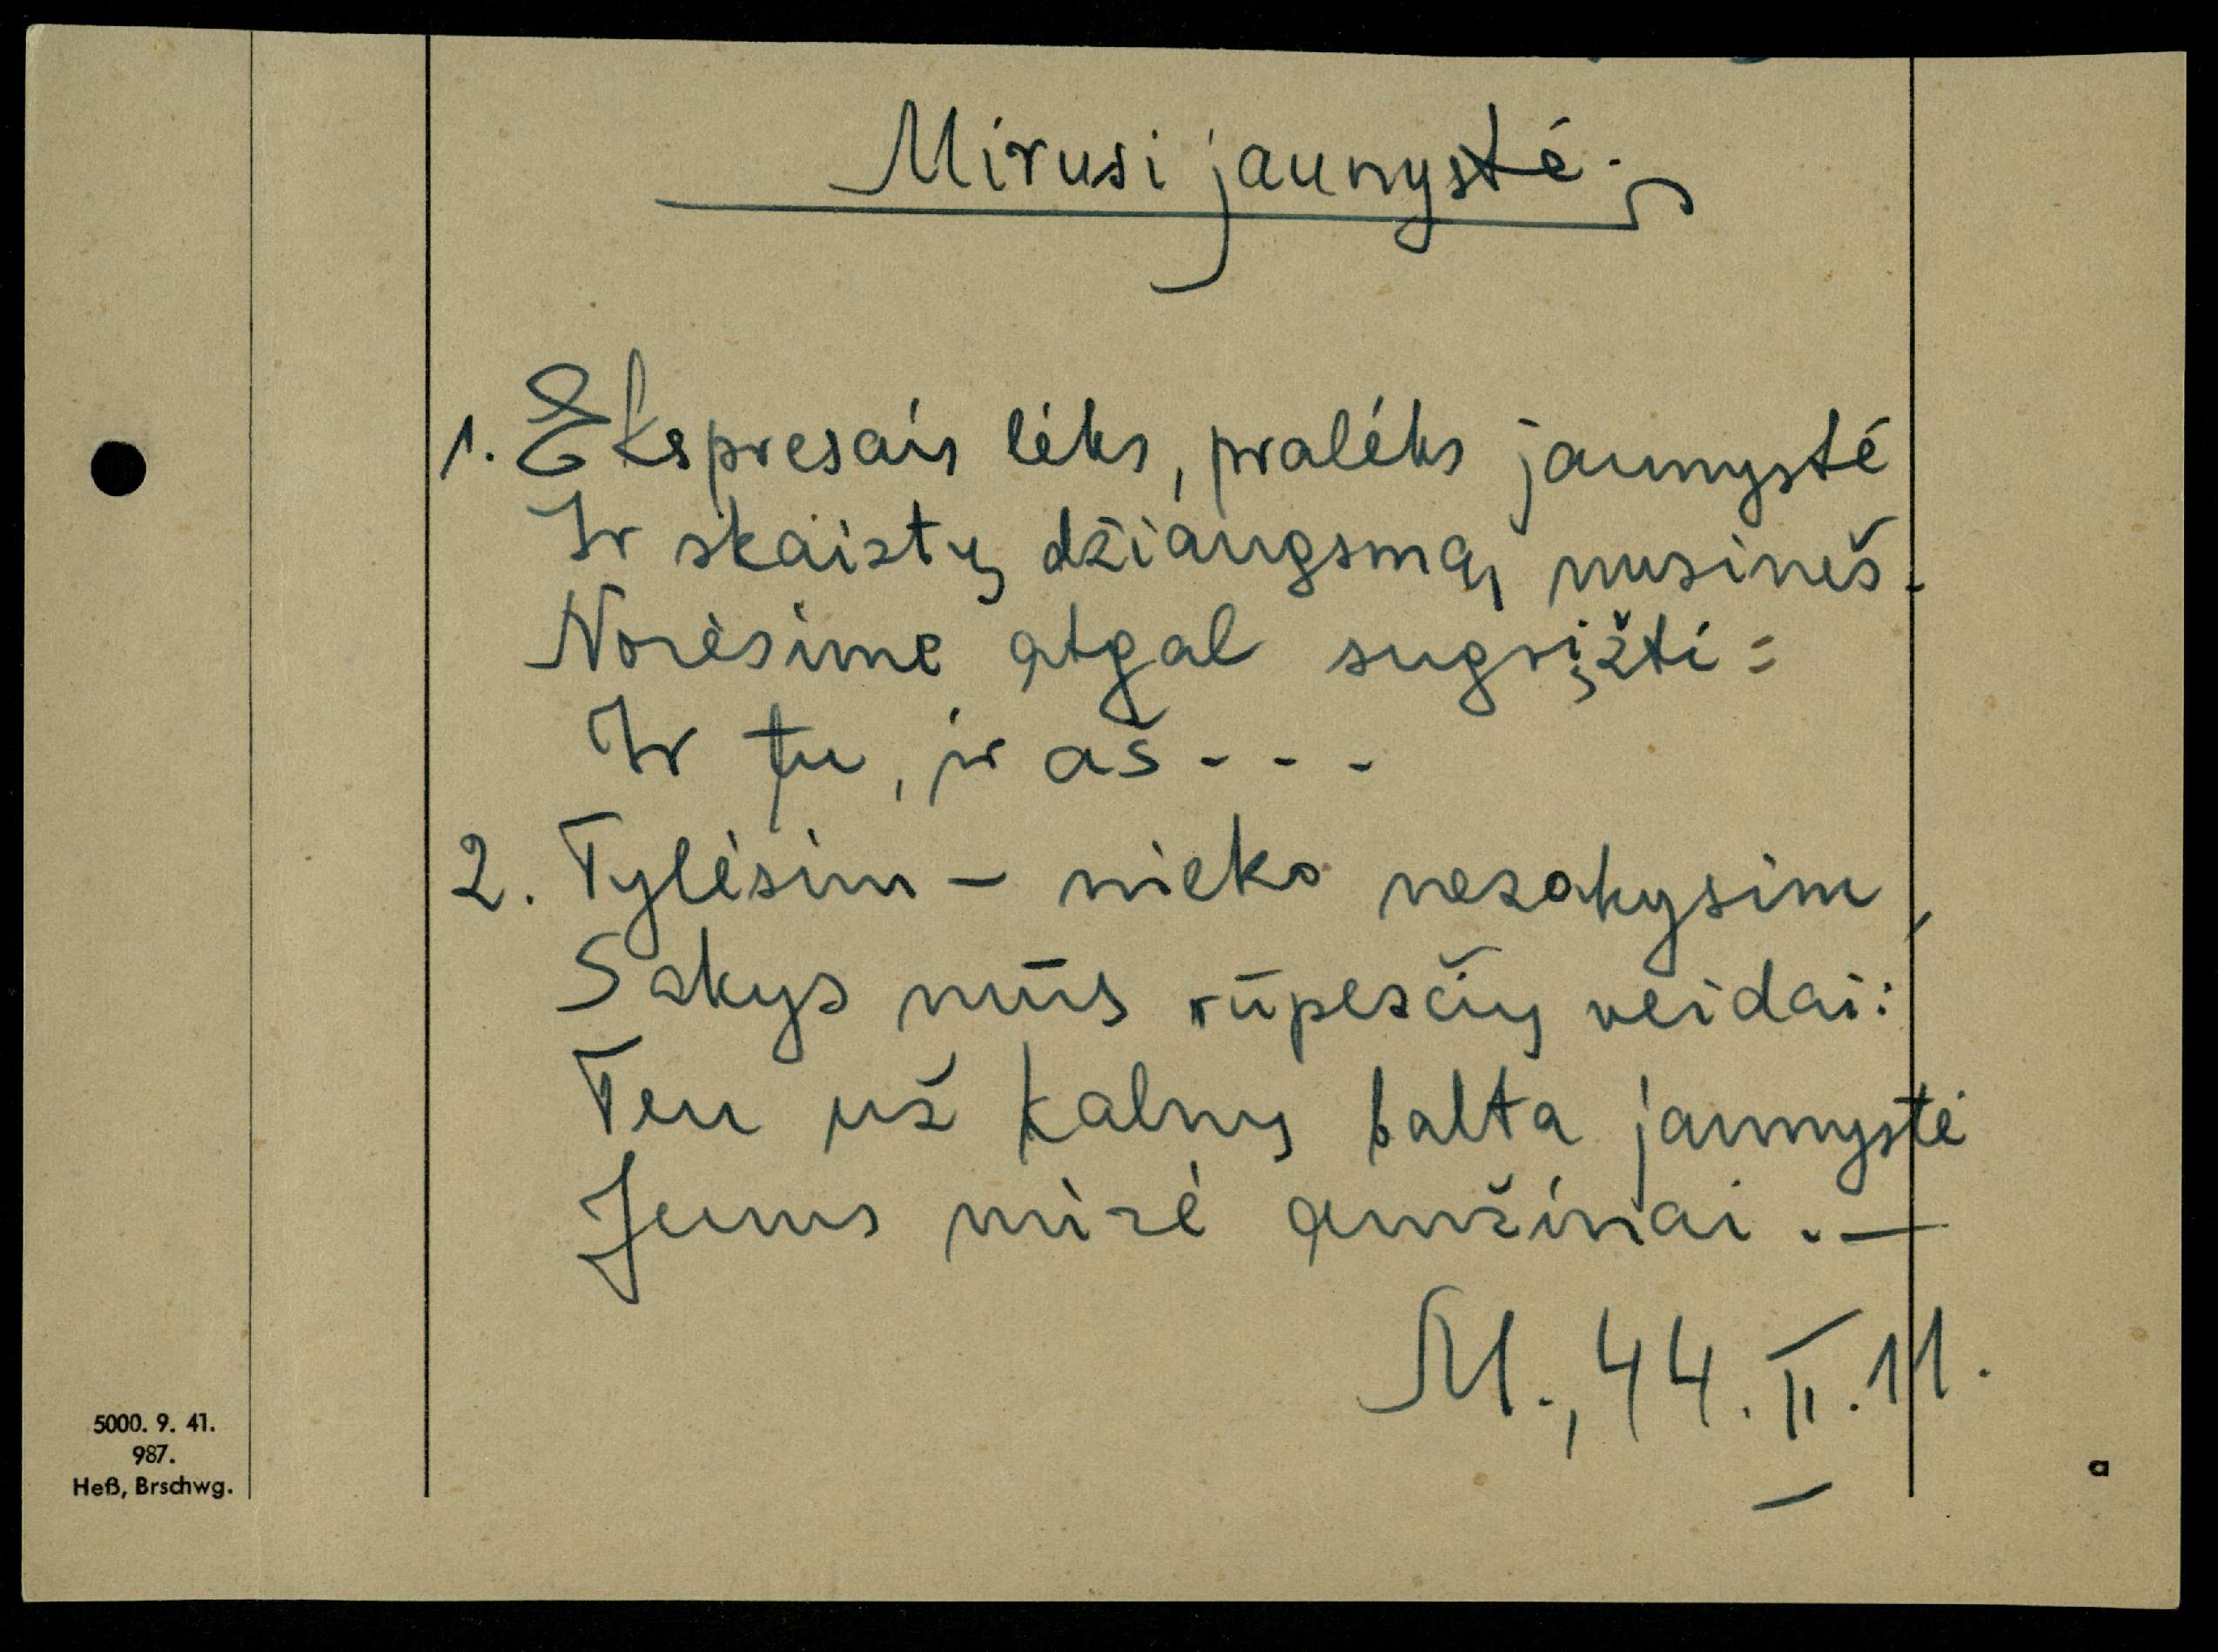 Mirusi jaunystė.
1. Ekspresais lėks, pralėks jaunystė
Ir skaistų džiaugsmą nusineš.
Norėsime atgal sugrįžti:
Ir tu, ir aš - - -
2. Tylėsim – nieko nesakysim,
Sakys mūs rūpesčių veidai:
Ten už kalnų balta jaunystė
Jums mirė amžinai. —
M., 44. II. 11.
5000. 9. 41.
987.
Heß, Brschwg.
a